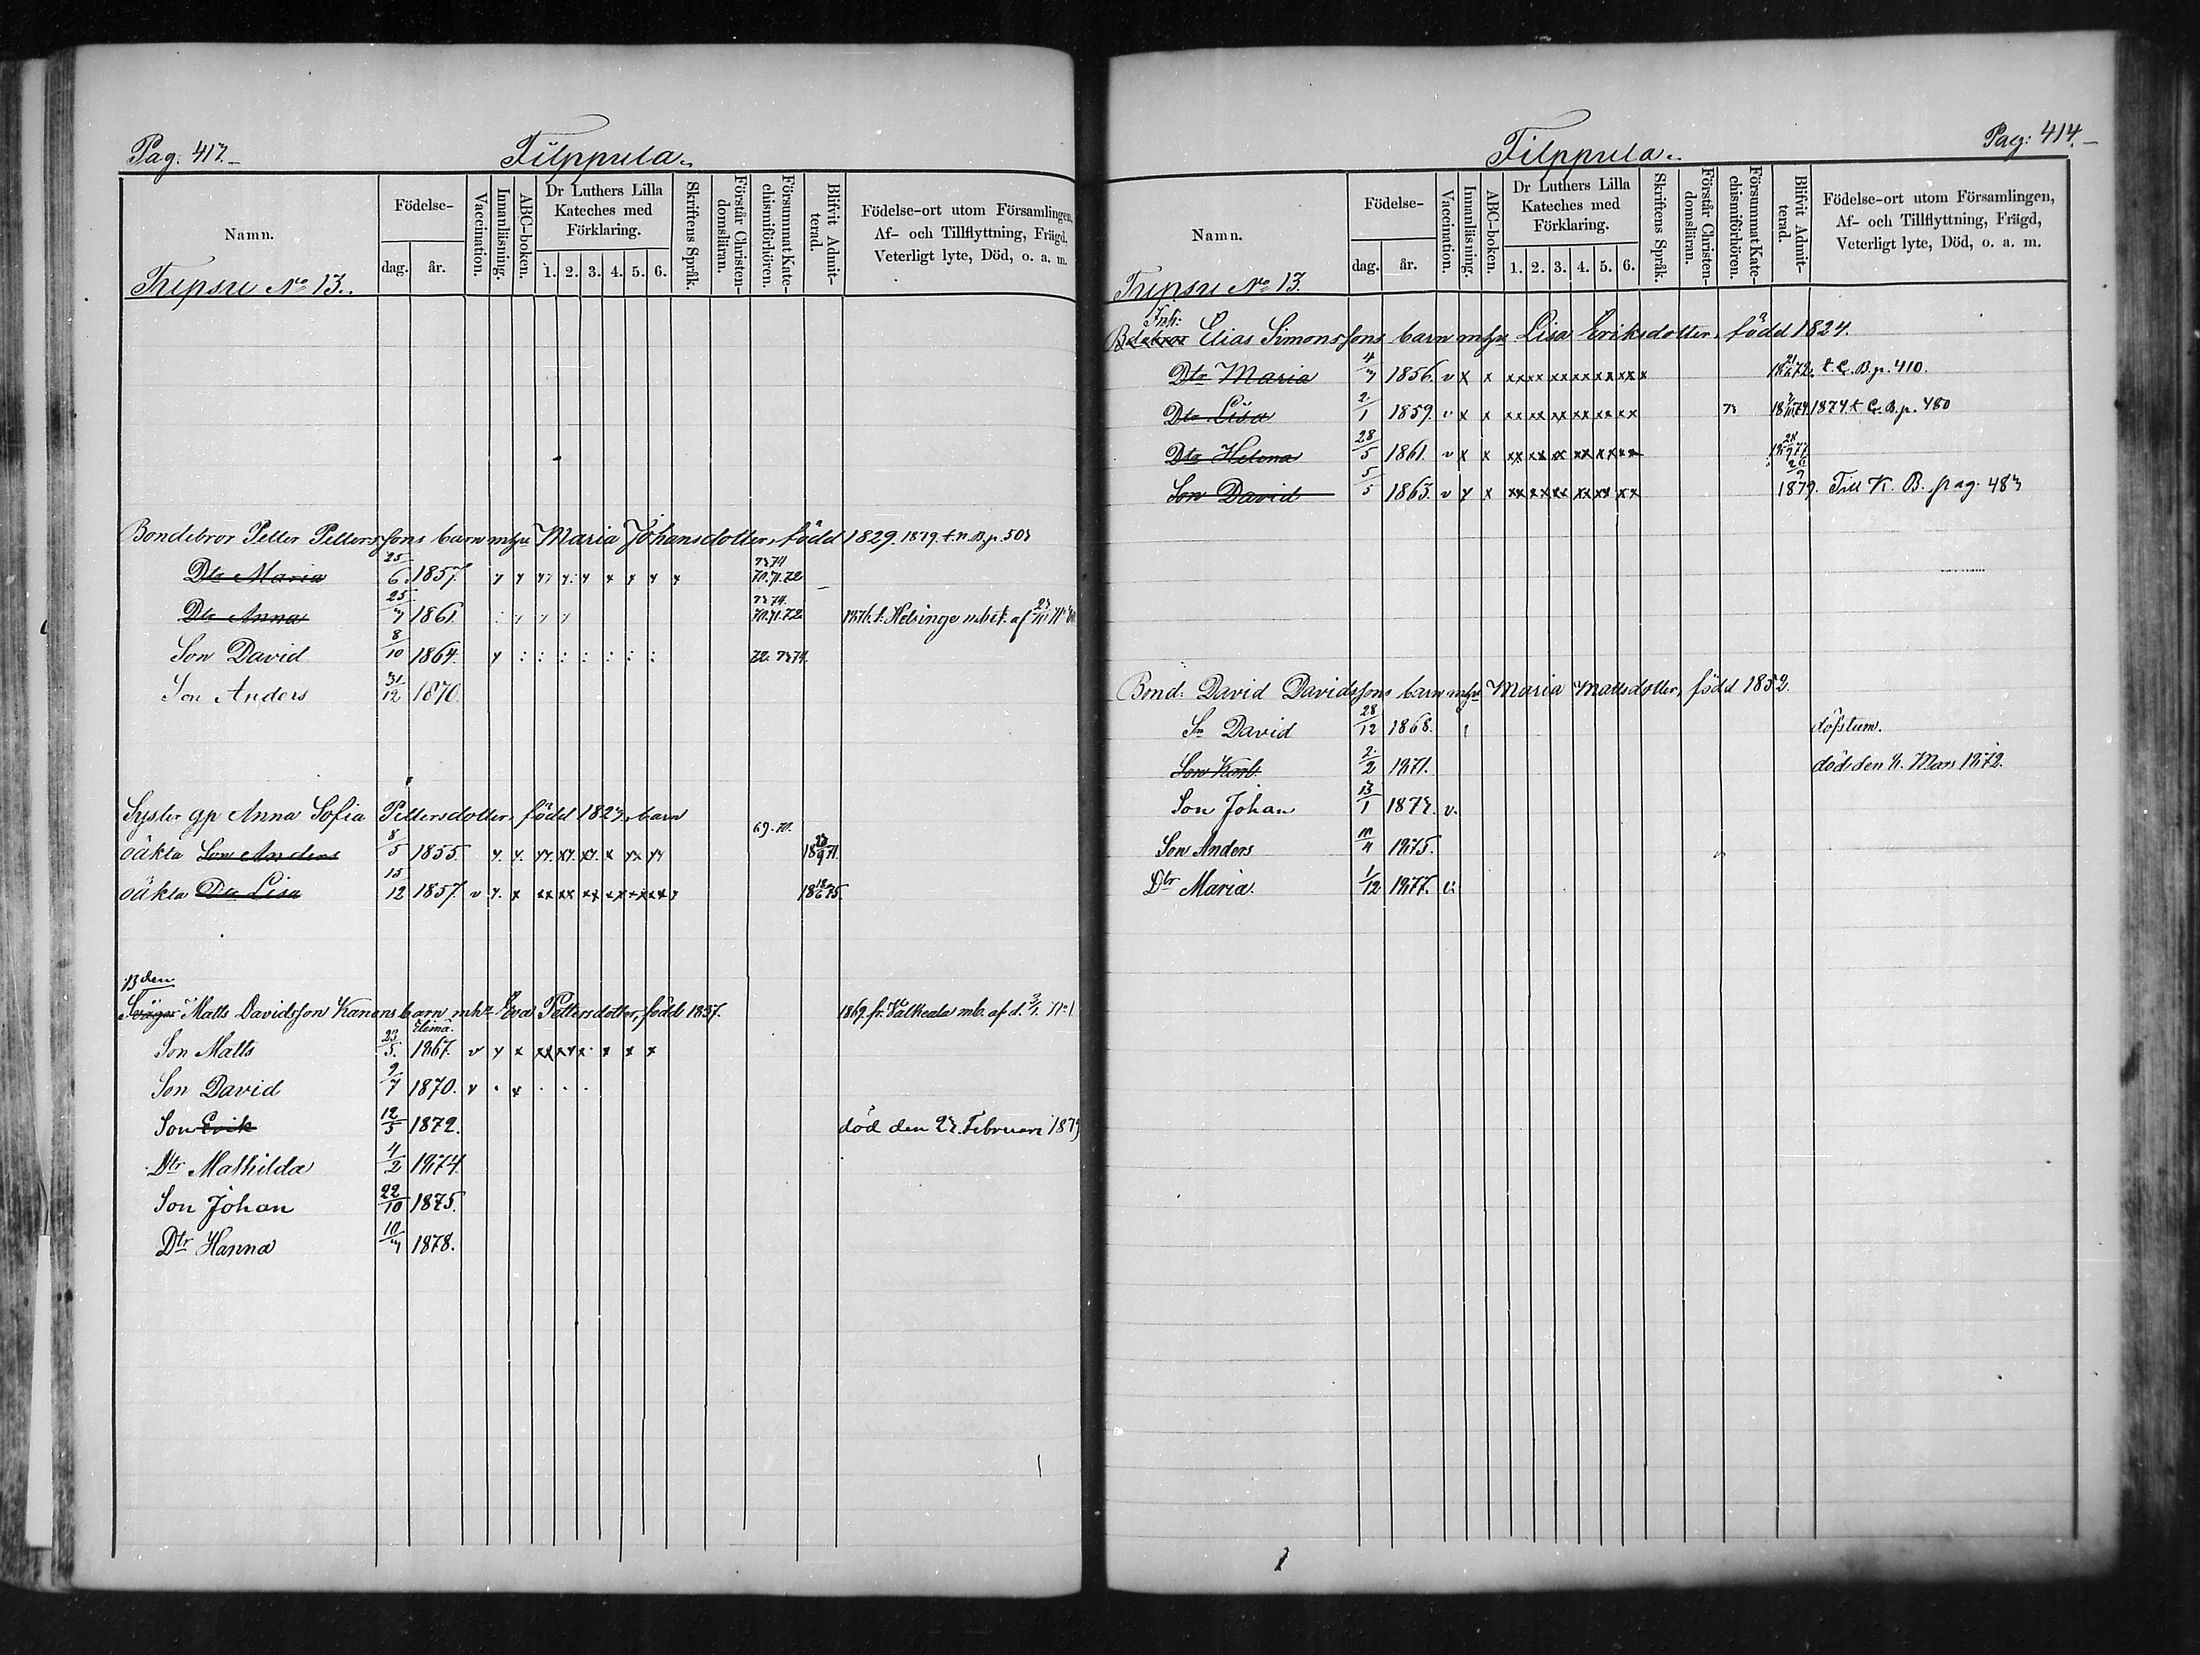 Pag. 413.
Filppula.
Namn.
Födelse-
dag.
år.
Vaccination.
Innanläsning.
ABC-boken.
Dr Luthers Lilla Kateches med Förklaring.
1. 2. 3. 4. 5. 6.
Skriftens Språk.
Förstår Christendomsläran.
Försummat Katechismiförhören.
Blifvit Admitterad.
Födelse-ort utom Församlingen, Af- och Tillflyttning, Frägd, Veterligt lyte, Död, o. a. m.
No 13.
Bondebror Petter Pettersssons barn mhu Maria Johansdotter, född 1829. 1879. t. n. B. p. 503
Dtr Maria 25/6 1857. 73 74 70. 71. 72
Dtr Anna 25/7 1861 73 74. 70. 71. 72 1876. t. Helsinge m. bet. af
Son David 8/10 1864. 72. 73 74.
Son Anders 31/12 1870.
Syster gp Anna Sofia Pettersdotter, född 1823, barn
oäkta Son Anders 8/5 1855. 69. 70. 18 23/9 71.
oäkta Dtr Lisa 15/12 1857. 18 18/6 75.
Bden
Svåger Matts Davidsson Kanons barn mhu Eva Pettersdotter, född 1837. 1869. fr. Valkeala mb. af d.
Elimä.
Son Matts 23/5. 1867.
Son David 9/7 1870.
Son Erik 12/5 1872. död den 23. Februari 1879
Dtr Mathilda 4/2 1874.
Son Johan 22/10 1875.
Dtr Hanna 10/7 1878.
Filppula.
Pag: 414.
Namn.
Födelse-
dag.
år.
Vaccination.
Innanläsning.
ABC-boken.
Dr Luthers Lilla Kateches med Förklaring.
1. 2. 3. 4. 5. 6.
Skriftens Språk.
Förstår Christendomsläran.
Försummat Katechismiförhören.
Blifvit Admitterad.
Födelse-ort utom Församlingen, Af- och Tillflyttning, Frägd, Veterligt lyte, Död, o. a. m.
No 13.
Inh:
Bdebror Elias Simonssons barn mhu Lisa Eriksdotter, född 1824.
Dtr Maria 4/7 1856. t. C. B. p. 410.
Dtr Lisa 2/1 1859. 73 1874. t. C. B. p. 480
Dtr Helena 28/5 1861.
Son David 5/5 1863. 26/9 1879. Till K. B. pag. 483
Bond: David Davidssons barn mhu Maria Mattsdotter, född 1852.
Sn David 28/12 1868. döfstum.
Son Karl 2/2 1871. död den 8. Mars 1872.
Son Johan 13/1 1873. v.
Son Anders 1875.
Dtr Maria 1/12 1877. v.